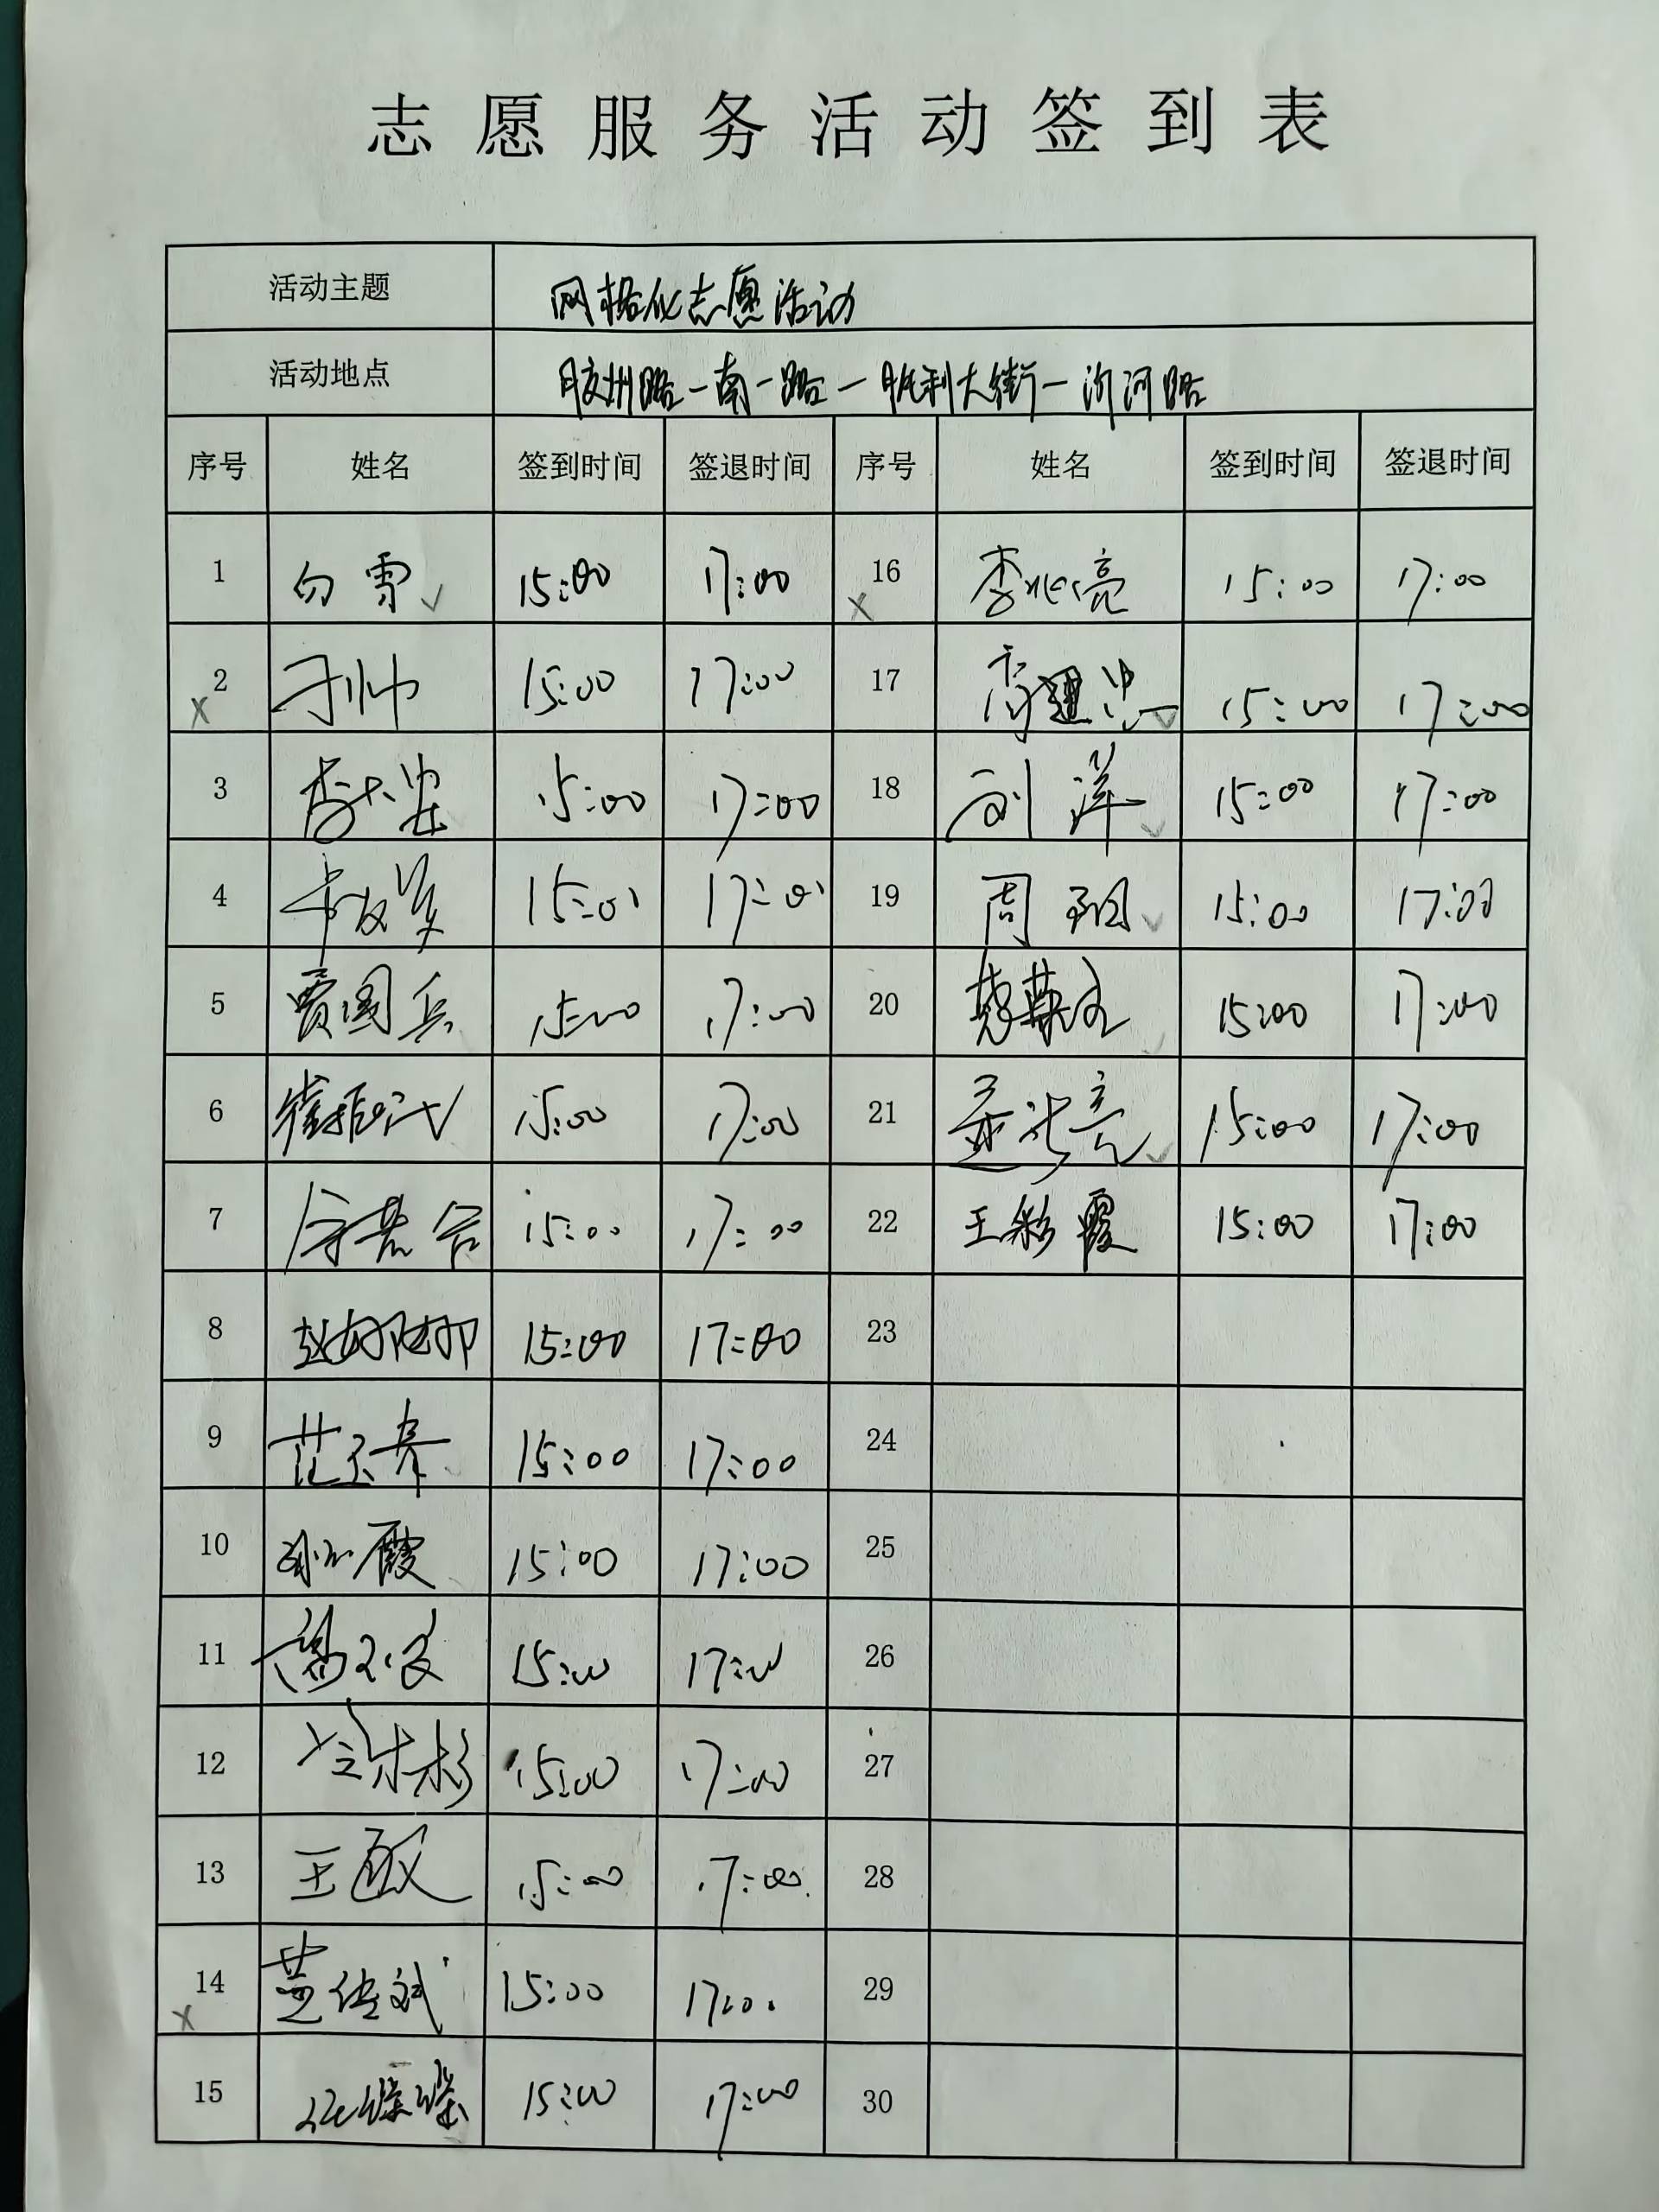 志愿服务活动签到表
活动主题 网格化志愿活动
活动地点 胶州路-南一路-胜利大街-沂河路
序号 姓名 签到时间 签退时间 序号 姓名 签到时间 签退时间
1 白雪 ✓ 15:00 17:00 16 x 李兆亮 15:00 17:00
2 x 于帅 15:00 17:00 17 高建忠 ✓ 15:00 17:00
3 15:00 17:00 18 刘萍 ✓ 15:00 17:00
4 15:00 17:00 19 周 ✓ 15:00 17:00
5 贾国兵 15:00 17:00 20 15:00 17:00
6 崔振 15:00 17:00 21 孟 亮 ✓ 15:00 17:00
7 15:00 17:00 22 王彩霞 15:00 17:00
8 赵 15:00 17:00 23
9 范玉春 15:00 17:00 24
10 霞 15:00 17:00 25
11 15:00 17:00 26
12 冷 彬 15:00 17:00 27
13 王敏 15:00 17:00 28
14 x 15:00 17:00 29
15 15:00 17:00 30